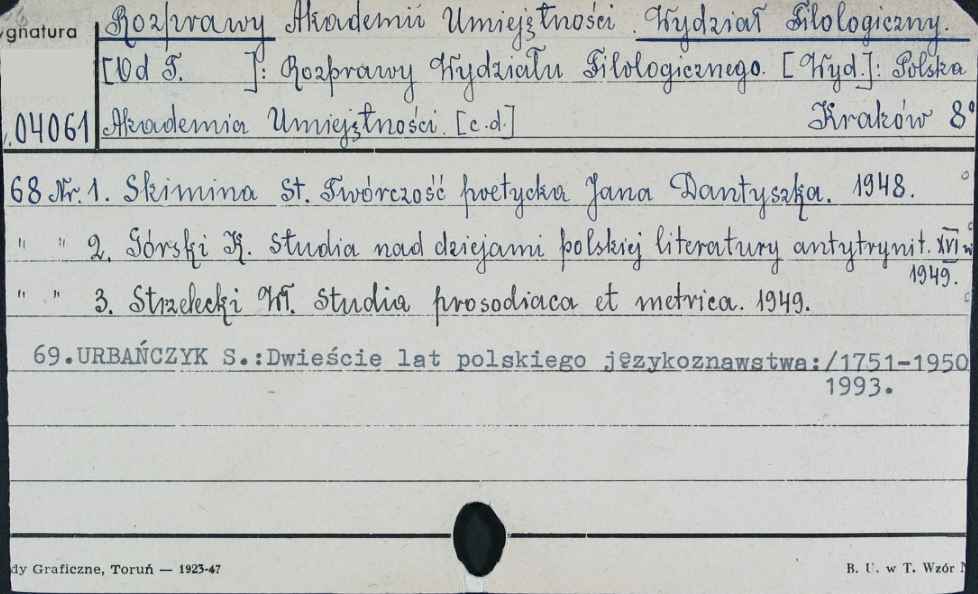 ygnatura
Rozprawy Akademii Umiejętności. Wydział Filologiczny.
[Od T. ]: Rozprawy Wydziału Filologicznego. [Wyd.]: Polska
04061 Akademia Umiejętności. [c.d.] Kraków 8°
68 Nr. 1. Skimina St. Twórczość poetycka Jana Dantyszka. 1948.
" " 2. Górski K. Studia nad dziejami polskiej literatury antytrynit. XVI w
1949.
" " 3. Strzelecki Wł. Studia prosodiaca et metrica. 1949.
69.URBAŃCZYK S.:Dwieście lat polskiego językoznawstwa:/1751-1950
1993.
dy Graficzne, Toruń — 1923-47
B. U. w T. Wzór N